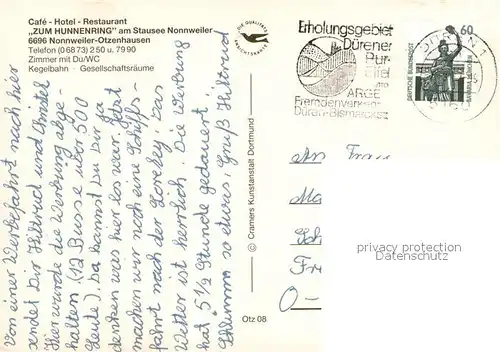 Café - Hotel - Restaurant
„ZUM HUNNENRING" am Stausee Nonnweiler
6696 Nonnweiler-Otzenhausen
Telefon (0 68 73) 2 50 u. 79 90
Zimmer mit Du/WC
Kegelbahn · Gesellschaftsräume
DIE QUALITÄTS
ANSICHTSKARTE
Erholungsgebiet
Dürener
Rur-
Eifel
ARGE
Fremdenverkehr
Düren-Bismarckstr.
DÜREN 1
60
DEUTSCHE BUNDESPOST
BAVARIA MÜNCHEN
Von einer Werbefahrt nach hier
sendet Dir Hiltrud und Christel
Hier wurde die Werbung abge-
halten (12 Busse über 500
Leute). Da kannst Du Dir ja
denken was hier los war. Jetzt
machen wir noch eine Schiffs-
fahrt nach der Loreley. Das
Wetter ist herrlich. Die Werbung
hat 5 1/2 Stunde gedauert
Schlimm so etwas, Gruß Hiltrud
© Cramers Kunstanstalt Dortmund
Otz 08
An Frau
O-
property protection
Datenschutz